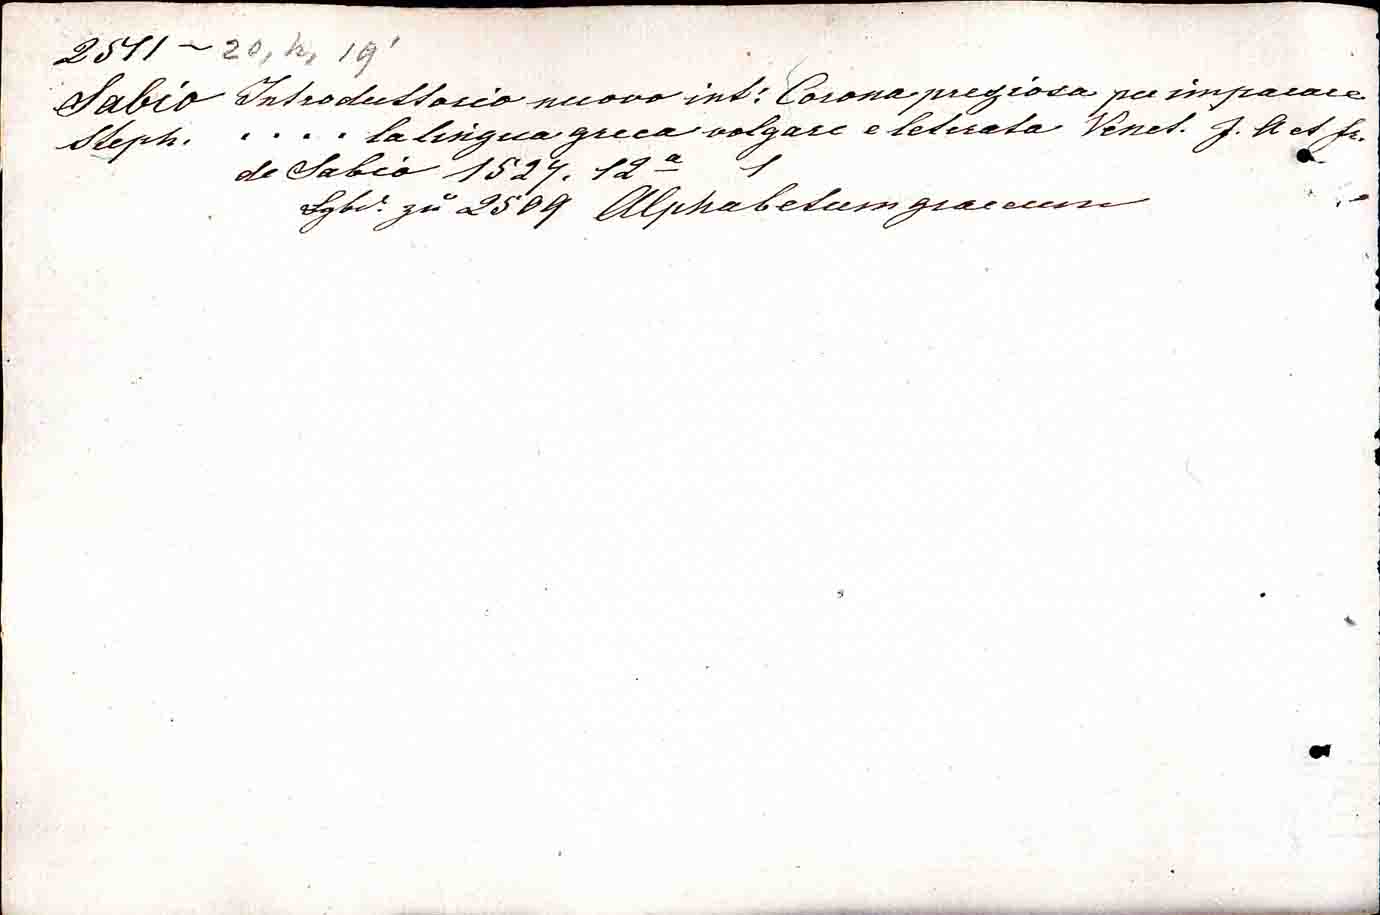 2511 ~ 20, k, 19'
Sabio Introduttorio nuovo int: Corona pregiosa per imparare
Steph. . . . . la lingua greca volgare e leterata Venet. J. A et fr.
de Sabio 1527. 12ª 1
zu 2509 Alphabetum graecum